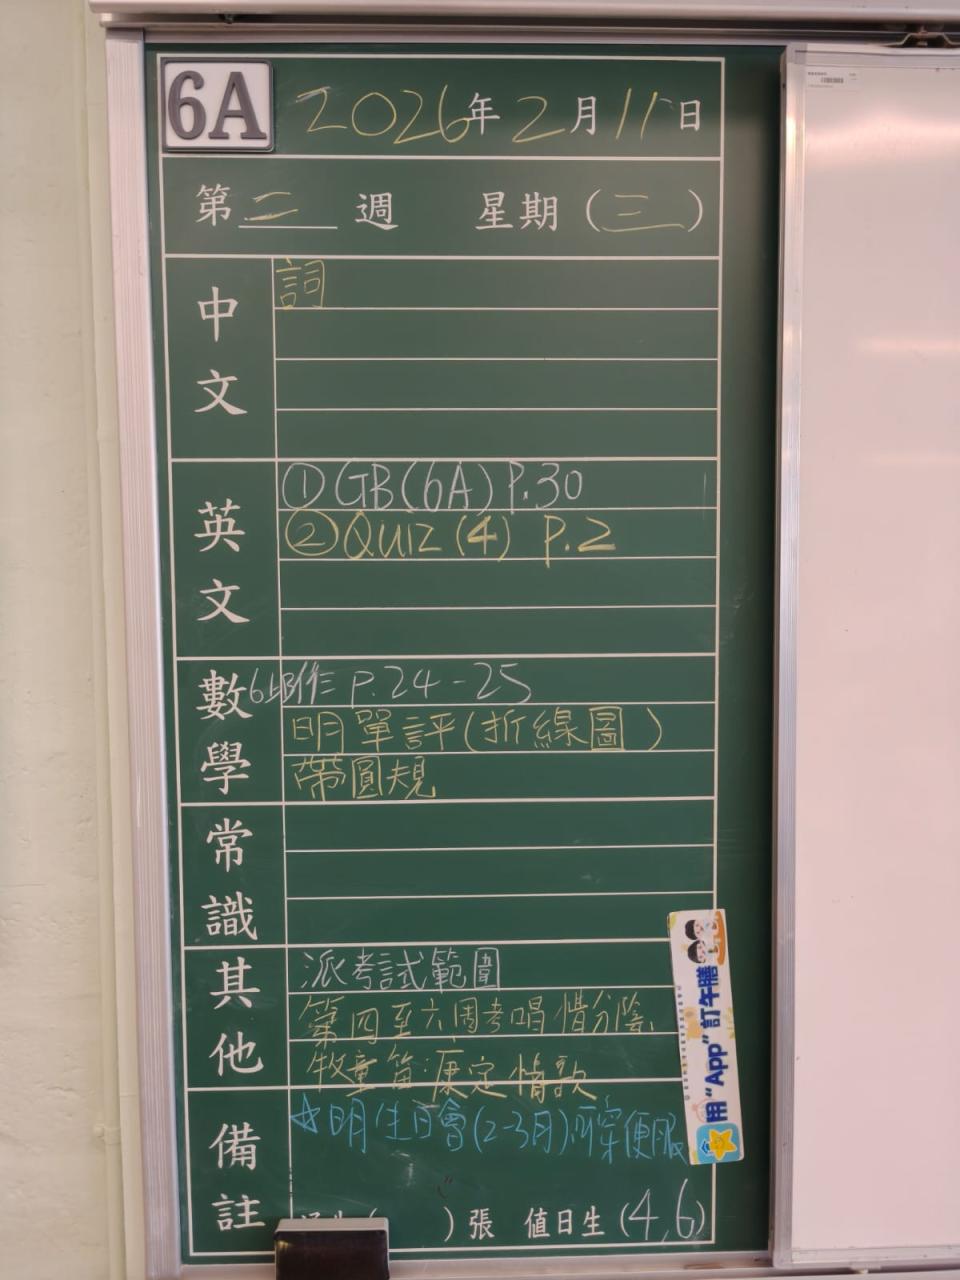 6A 2026年2月11日
第二週 星期(三)
中文
詞
英文
①GB(6A) P.30
②QUIZ(4) P.2
數學
P.24-25
明單評(折線圖)
帶圓規
常識
其他
派考試範圍
第四至六周考唱 惜分陰、
牧童笛、康定情歌
備註
☆明生日會(2-3月)可穿便服
)張 值日生(4,6)
用"App"訂午膳